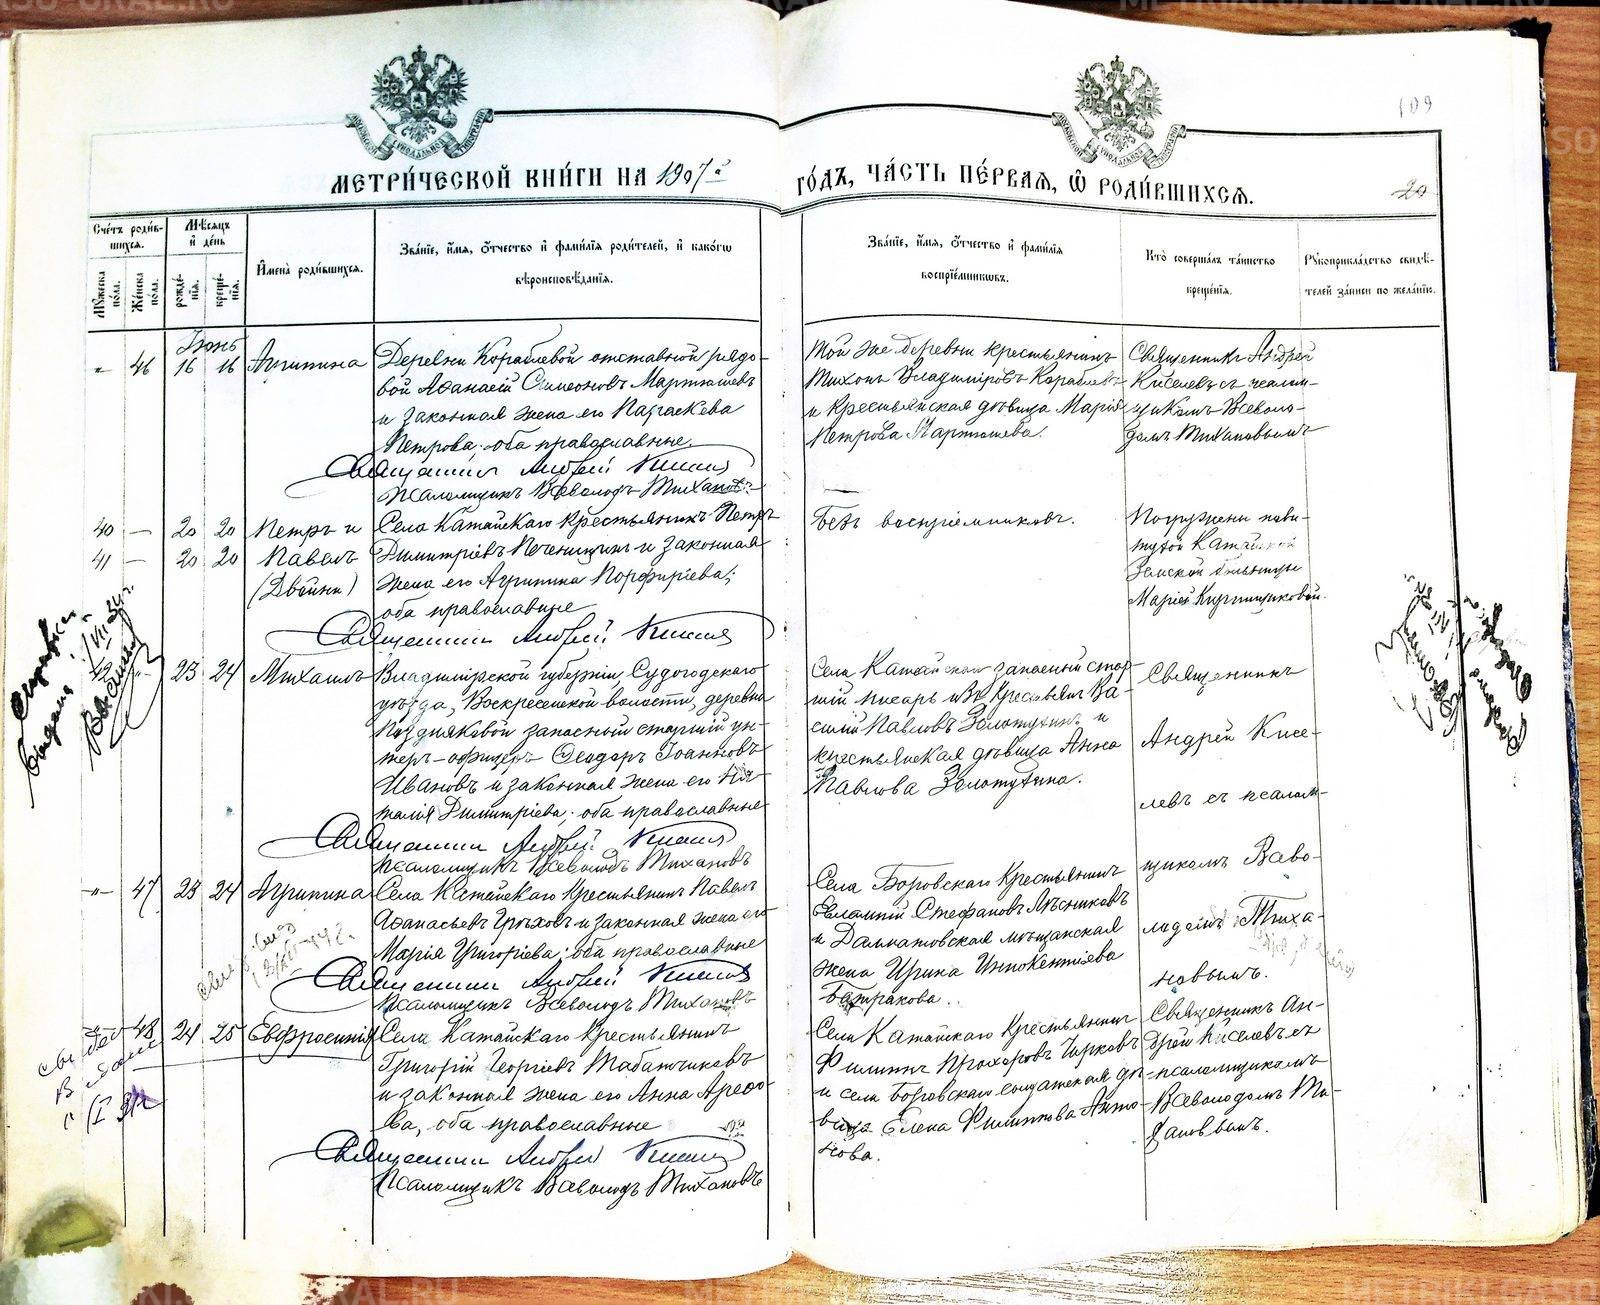 МЕТРИ́ЧЕСКОЙ КНИ́ГИ НА 1907й
ГО́ДЪ, ЧА́СТЬ ПЕ́РВАЯ, Ѽ РОДИ́ВШИХСЯ.
109
20
Сче́тъ роди́в-
шихся.
Мѣсяцъ
и день
Му́жеска по́ла.
Же́нска по́ла.
рожде́-
нія.
креще́-
нія.
Имена̀ роди́вшихся.
Зва́ніе, и́мя, о́тчество и фами́лія роди́телей, и како́гѡ
вѣроисповѣ́данія.
Зва́ніе, и́мя, о́тчество и фами́лія
воспріе́мниковъ.
Кто̀ соверша́лъ та́инство
креще́нія.
Рукоприкла́дство свидѣ́-
телей за́писи по жела́нію.
Іюнь
46 16 16 Агрипина
Деревни Кораблевой отставной рядо-
вой Аѳанасій Симеоновъ Мартюшевъ
и законная жена его Параскева
Петрова; оба православные.
Священникъ Андрей Киселевъ
Псаломщикъ Всеволодъ Тихановъ
Той же деревни крестьянинъ
Тихонъ Владиміровъ Кораблевъ
и крестьянская дѣвица Марія
Петрова Мартюшева.
Священникъ Андрей
Киселевъ съ псалом-
щикомъ Всеволо-
домъ Тихановымъ
40 — 20 20 Петръ и
41 — 20 20 Павелъ
(Двойни)
Села Катайскаго крестьянинъ Петръ
Димитріевъ Печенкинъ и законная
жена его Агрипина Порфиріева;
оба православные
Священникъ Андрей Киселевъ
Безъ воспріемниковъ.
Погружены пови-
тухой Катайской
Земской больницы
Маріей Кирпищиковой.
42 23 24 Михаилъ
Владимірской губерніи, Судогодскаго
уѣзда, Воскресенской волости, деревни
Поздняковой запасный старшій ун-
теръ-офицеръ Ѳеодоръ Іоанновъ
Ивановъ и законная жена его На-
талія Димитріева; оба православные
Священникъ Андрей Киселевъ
Псаломщикъ Всеволодъ Тихановъ
Села Катайскаго запасный стар-
шій писарь изъ крестьянъ Ва-
силій Павловъ Золотухинъ и
крестьянская дѣвица Анна
Павлова Золотухина.
Священникъ
Андрей Кисе-
левъ съ псалом-
щикомъ Всево-
лодомъ Тиха-
новымъ.
47 23 24 Агрипина
Села Катайскаго крестьянинъ Павелъ
Аѳанасьевъ Грѣховъ и законная жена его
Марія Григоріева; оба православные
Священникъ Андрей Киселевъ
Псаломщикъ Всеволодъ Тихановъ
Села Боровскаго крестьянинъ
Евлампій Стефановъ Лѣсниковъ
и Далматовская мѣщанская
жена Ирина Иннокентіева
Батракова.
48 24 25 Евфросинія
Села Катайскаго крестьянинъ
Григорій Георгіевъ Табатчиковъ
и законная жена его Анна Арефо-
ва, оба православные
Священникъ Андрей Киселевъ
Псаломщикъ Всеволодъ Тихановъ
Села Катайскаго крестьянинъ
Филиппъ Прохоровъ Чирковъ
и села Боровскаго солдатская дѣ-
вица Елена Филиппова Анто-
нова.
Священникъ Ан-
дрей Киселевъ съ
псаломщикомъ
Всеволодомъ Ти-
хановымъ.
Справка
выдана
METRIKI.GASO-URAL.RU